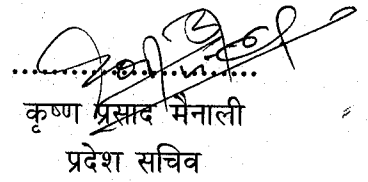 कृष्ण प्रसाद मैनाली
प्रदेश सचिव